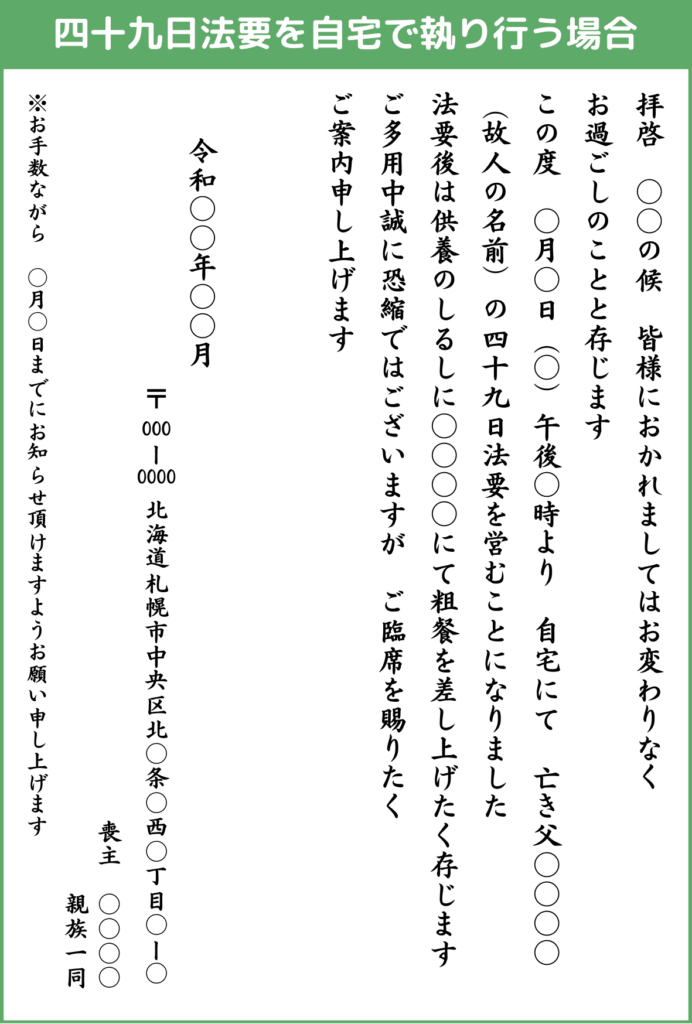 四十九日法要を自宅で執り行う場合
拝啓　〇〇の候　皆様におかれましてはお変わりなく
お過ごしのことと存じます
この度　〇月〇日（〇）午後〇時より　自宅にて　亡き父〇〇〇〇
（故人の名前）の四十九日法要を営むことになりました
法要後は供養のしるしに〇〇〇〇にて粗餐を差し上げたく存じます
ご多用中誠に恐縮ではございますが　ご臨席を賜りたく
ご案内申し上げます
令和〇〇年〇〇月
〒000ー0000　北海道札幌市中央区北〇条〇西〇丁目〇ー〇
喪主　〇〇〇〇
親族一同
※お手数ながら　〇月〇日までにお知らせ頂けますようお願い申し上げます